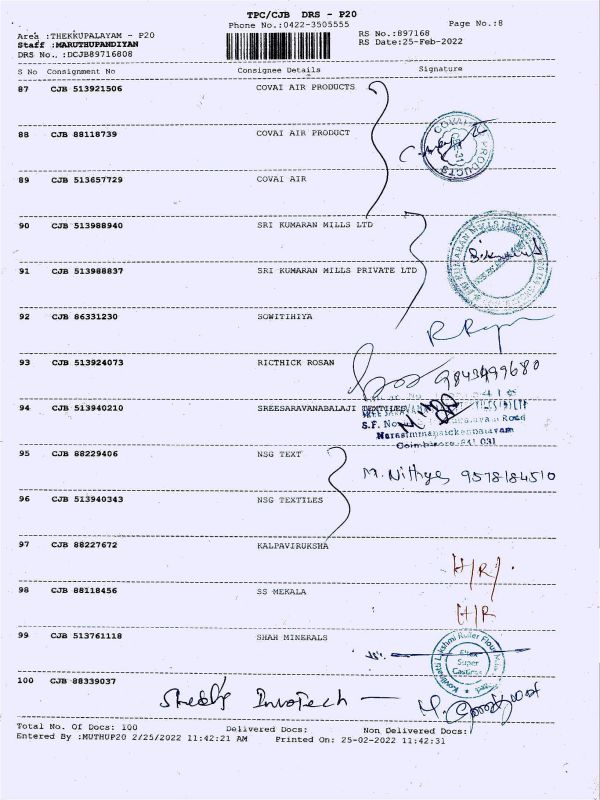 TPC/CJB DRS - P20
Phone No.:0422-3505555
Page No.:8
Area :THEKKUPALAYAM - P20
RS No.:897168
Staff :MARUTHUPANDIYAN
RS Date:25-Feb-2022
DRS No.,:DCJB89716808
S No Consignment No Consignee Details Signature
87 CJB 513921506 COVAI AIR PRODUCTS
88 CJB 88118739 COVAI AIR PRODUCT
COVAI PRODUCTS
89 CJB 513657729 COVAI AIR
90 CJB 513988940 SRI KUMARAN MILLS LTD
91 CJB 513988837 SRI KUMARAN MILLS PRIVATE LTD
92 CJB 86331230 SOWITIHIYA
93 CJB 513924073 RICTHICK ROSAN
9843499680
94 CJB 513940210 SREESARAVANABALAJI TEXTILES
S.F. No
Road
Narasimmanaickenpalayam
Coimbatore-641 031
95 CJB 88229406 NSG TEXT
M. Nithya 9578184510
96 CJB 513940343 NSG TEXTILES
97 CJB 88227672 KALPAVIRUKSHA
H/R/.
98 CJB 88118456 SS MEKALA
H/R
99 CJB 513761118 SHAH MINERALS
Lakshmi Roller Flour
Super
100 CJB 88339037
InvoTech
Total No. Of Docs: 100 Delivered Docs: Non Delivered Docs:
Entered By :MUTHUP20 2/25/2022 11:42:21 AM Printed On: 25-02-2022 11:42:31